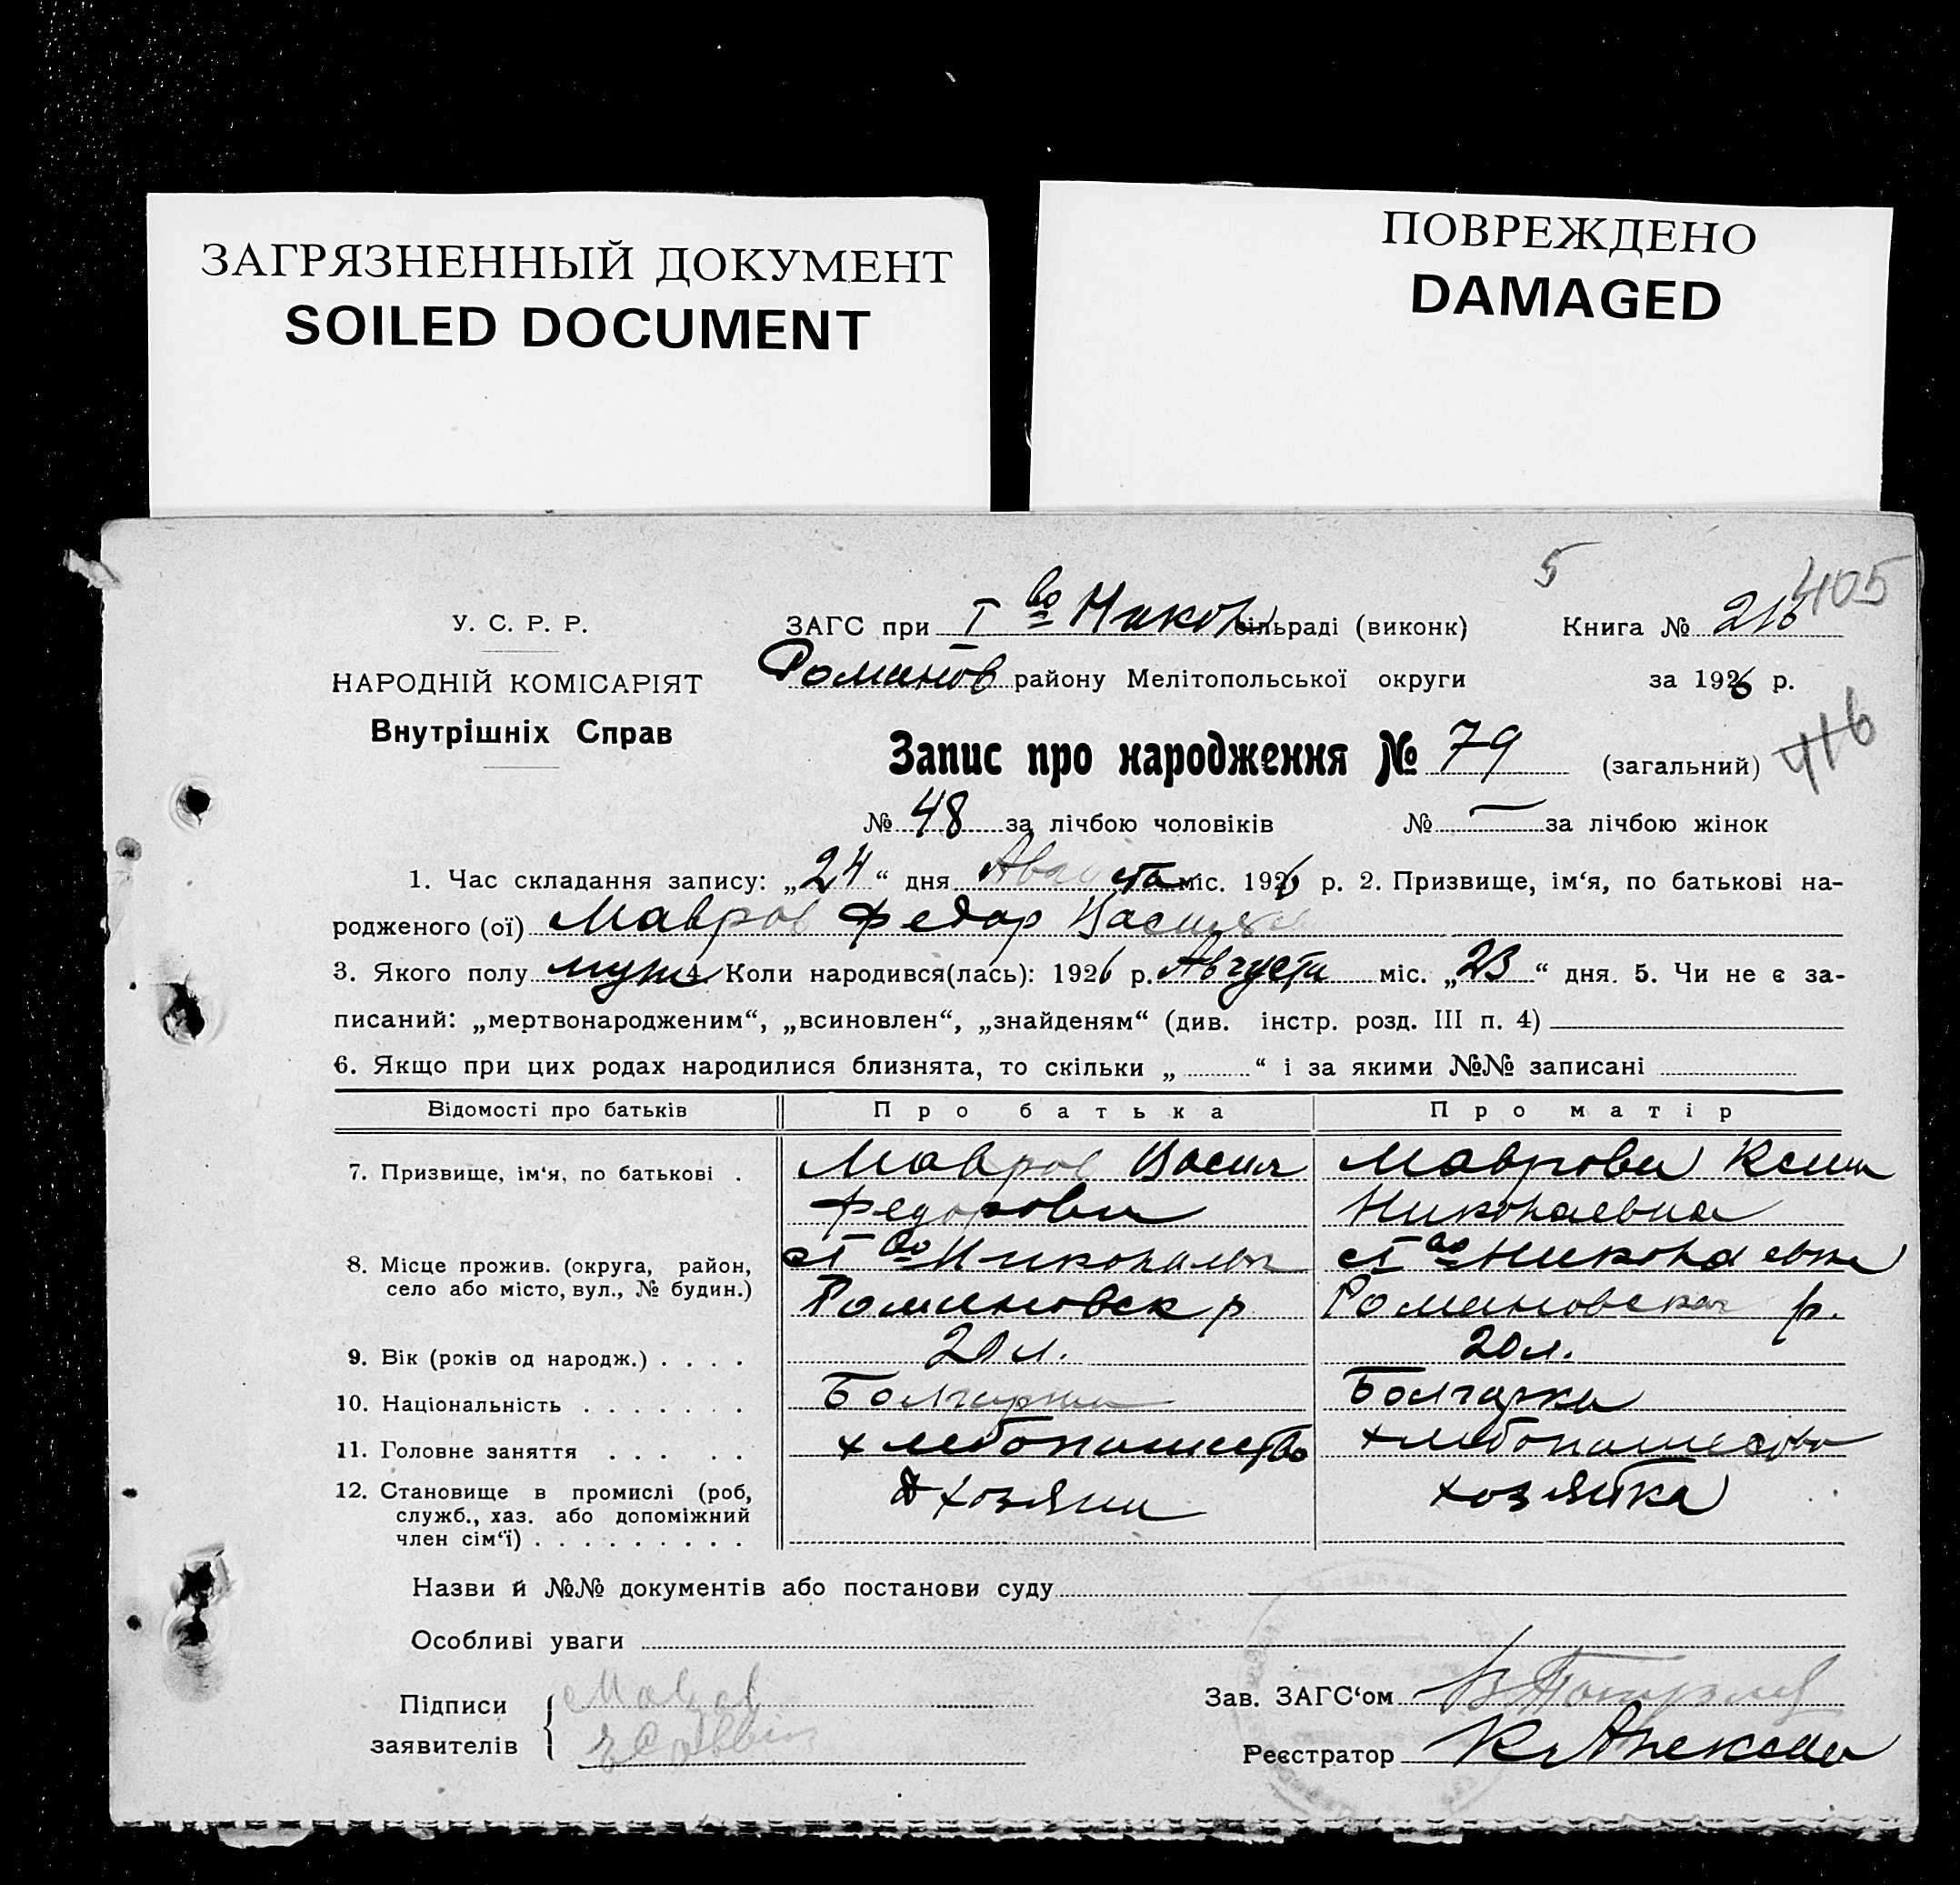 ЗАГРЯЗНЕННЫЙ ДОКУМЕНТ
SOILED DOCUMENT
ПОВРЕЖДЕНО
DAMAGED
5
405
У. С. Р. Р.
ЗАГС при I во Никол сільраді (виконк) Книга № 216
НАРОДНІЙ КОМІСАРІЯТ
Романов району Мелітопольської округи за 1926 р.
Внутрішніх Справ
416
Запис про народження № 79 (загальний)
№ 48 за лічбою чоловіків № — за лічбою жінок
1. Час складання запису: „24“ дня Августа міс. 1926 р. 2. Призвище, ім‘я, по батькові на-
родженого (ої) Мавров Федор Васил
3. Якого полу муж 4. Коли народився(лась): 1926 р. Августа міс. „23“ дня. 5. Чи не є за-
писаний: „мертвонародженим“, „всиновлен“, „знайденям“ (див. інстр. розд. III п. 4)
6. Якщо при цих родах народилися близнята, то скільки „ “ і за якими №№ записані
Відомості про батьків Про батька Про матір
7. Призвище, ім‘я, по батькові . Мавров Васил Маврова Ксен
Федорови Николаевна
8. Місце прожив. (округа, район, село або місто, вул., № будин.)
I во Николаевк I во Николаевка
Романовск р Романовская р.
9. Вік (років од народж.) . . . . 20 л. 20 л.
10. Національність . . . . . . . Болгарин Болгарка
11. Головне заняття . . . . . хлебопашество хлебопашество
12. Становище в промислі (роб, служб., хаз. або допоміжний член сім‘ї) . . . . . . . . . хозяин хозяйка
Назви й №№ документів або постанови суду
Особливі уваги
Підписи заявителів
Зав. ЗАГС‘ом
Реєстратор